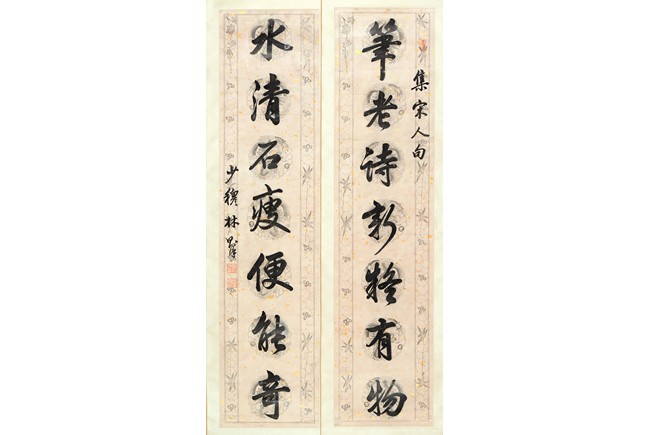 筆老詩新疑有物
集宋人句
水清石瘦便能奇
少穆林則徐